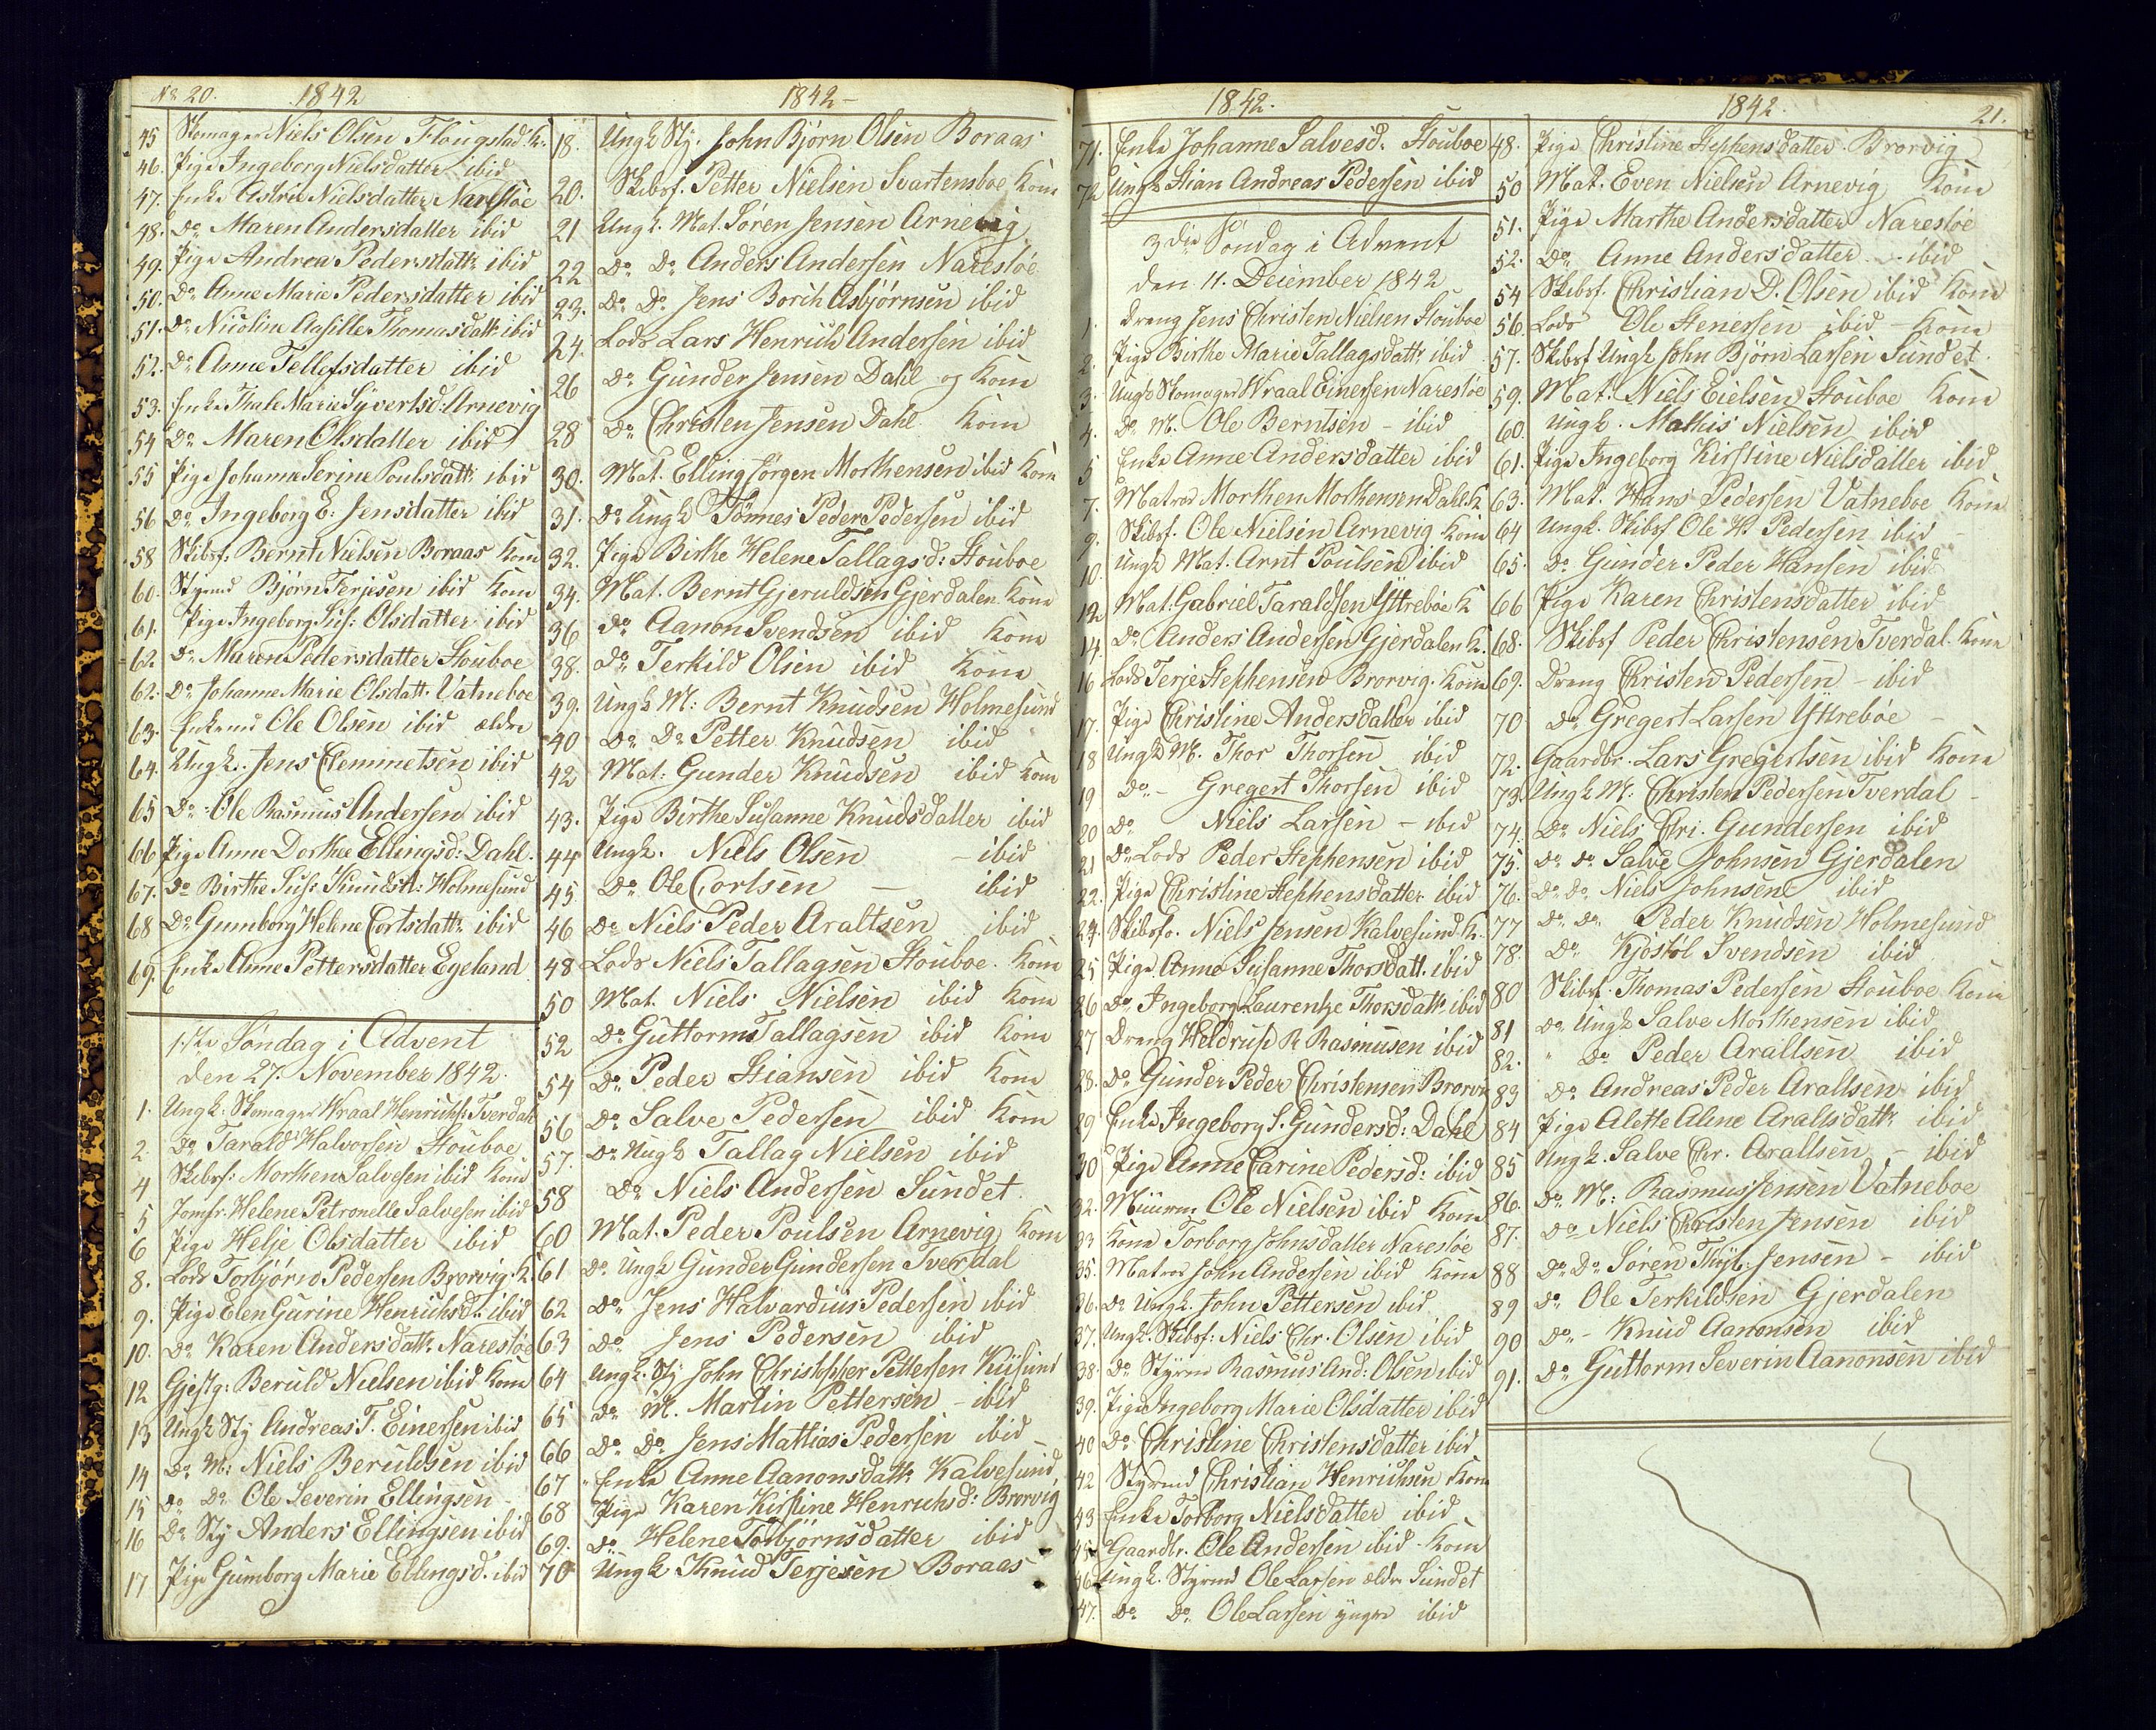 No 20. 1842
45 Skomager Niels Olsen Flougstad K:
46. Pige Ingeborg Nielsdatter ibid
47. Enke Astrie Nielsdatter Narestøe
48. Do Maren Andersdatter ibid
49. Pige Andrea Pedersdattr ibid
50. Do Anne Marie Pedersdatter ibid
51. Do Nicoline Aasille Thomasdattr ibid
52. Do Anne Tellefsdatter ibid
53. Enke Thale Marie Syvertsd: Arnevig
54 Do Maren Olsdatter ibid
55 Pige Johanne Serine Poulsdattr ibid
56 Do Ingeborg E: Jensdatter ibid
58 Skibsf: Bernt Nielsen Boraas Kone
60. Styrmd Bjørn Terjesen ibid Kone
61. Pige Ingeborg Sus: Olsdatter ibid
62 Do Maren Pettersdatter Stouboe
62. Do Johanne Marie Olsdatt. Vatneboe
63. Enkemd Ole Olsen ibid ældre
64. Ungk. Jens Clemmetsen ibid
65 Do Ole Rasmus Andersen ibid
66 Pige Anne Dorthee Ellingsd: Dahl.
67. Do Birthe Sus: Knudsd: Holmesund
68 Do Gumborg Helene Cortsdattr ibid
69. Enke Anne Pettersdatter Egeland
1ste Søndag i Advent
den 27. November 1842.
1. Ungk. Skomager Wraal Henrichs: Tverdal
2. Do Tarald Halvorsen Stouboe
4 Skibsf: Morthen Salvesen ibid Kone
5 Jomfr. Helene Petronelle Salvesen ibid
6 Pige Helje Olsdatter ibid
8. Lods Torbjørn Pedersen Brorvig. K
9. Pige Elen Gurine Henrichsd: ibid
10. Do Karen Andersdattr Narestøe
12 Gjestg: Beruld Nielsen ibid Kone
13 Ungk Sty Andreas T. Einersen ibid
14 Do M: Niels Beruldsen ibid
15 Do Do Ole Severin Ellingsen -
16 Do Sty Anders Ellingsen ibid
17 Pige Gumborg Marie Ellingsd. ibid
1842-
18. Ungk Sty. John Bjørn Olsen Boraas
20. Skibsf. Petter Nielsen Svartensboe Kone
21 Ungk. Mat. Søren Jensen Arnevig
22 Do Do Anders Andersen Narestøe
23. Do Do Jens Borch Asbjørnsen ibid
24. Lods Lars Henrich Andersen ibid
26 Do Gunder Jensen Dahl og Kone
28 Do Christen Jensen Dahl Kone
30. Mat. Elling Jørgen Morthensen ibid Kone
31. Do Ungk Tønnes Peder Pedersen ibid
32. Pige Birthe Helene Tallagsd: Stouboe
34. Mat. Bernt Gjeruldsen Gjerdalen Kone
36 Do Aanon Svendsen ibid Kone
38. Do Terkild Olsen ibid Kone
39. Ungk M: Bernt Knudsen Holmesund
40 Do Do Petter Knudsen ibid
42 Mat: Gunder Knudsen ibid Kone
43. Pige Birthe Susanne Knudsdatter ibid
44 Ungk. Niels Olsen - ibid
45. Do Ole Cortsen - ibid
46 Do Niels Peder Araltsen ibid
48 Lods Niels Tallagsen Stouboe. Kone
50 Mat. Niels Nielsen ibid Kone
52 Do Guttorm Tallagsen ibid Kone
54 Do Peder Stiansen ibid Kone
56 Do Salve Pedersen ibid Kone
57. Do Ungk Tallag Nielsen ibid
58 Do Niels Andersen Sundet
60 Mat. Peder Poulsen Arnevig Kone
61 Do Ungk Gunder Gundersen Tverdal
62 Do Jens Halvardius Pedersen ibid
63 Do Jens Pedersen ibid
64 Ungk. Sty John Christopher Pettersen Kiisund
65 Do M. Martin Pettersen - ibid
66 Do Do Jens Mathias Pedersen ibid
67 Enke Anne Aanonsdattr Kalvesund
68 Pige Karen Kirstine Henrichsd: Brorvig
69. Do Helene Torbjørnsdatter ibid
70 Ungk Knud Terjesen Boraas
1842.
71. Enke Johanne Salvesd: Stouboe
72 Ungk Stian Andreas Pedersen ibid
3die Søndag i Advent
den 11. December 1842
1. Dreng Jens Christen Nielsen Stouboe
2. Pige Birthe Marie Tallagsdattr ibid
3. Ungk Skomager Wraal Einersen Narestøe
4. Do M. Ole Berntsen - ibid
5 Enke Anne Andersdatter ibid
7. Matros Morthen Morthensen Dahl K
9. Skibsf. Ole Nielsen Arnevig Kone
10. Ungk Mat. Arnt Poulsen ibid
12 Mat: Gabriel Taraldsen Yttrebøe K
14. Do Anders Andersen Gjerdalen K.
16 Lods Terje Stephensen Brorvig. Kone
17. Pige Christine Andersdatter ibid
18 Ungk M. Thor Thorsen ibid
19 Do - Gregert Thorsen ibid
20 Do Niels Larsen - ibid
21 Do Lods Peder Stephensen ibid
22. Pige Christine Stephensdatter ibid
24. Skibsfo. Niels Jensen Kalvesund. K.
25 Pige Anne Susanne Thorsdatt. ibid
26 Do Ingeborg Laurentze Thorsdattr ibid
27 Dreng Heldrup R Rasmusen ibid
28. Do Gunder Peder Christensen Brorvig
29 Enke Ingeborg S. Gundersd: Dahl
30 Pige Anne Carine Pedersd: ibid
32. Muurm Ole Nielsen ibid Kone
33 Kone Torborg Johnsdatter Narestøe
35. Matros John Andersen ibid Kone
36. Do Ungk. John Pettersen ibid
37. Ungk. Skibsf: Niels Chr. Olsen ibid
38. Do Styrmd Rasmus And: Olsen ibid
39. Pige Ingeborg Marie Olsdatter ibid
40 Do Christine Christensdatter ibid
42 Styrmd Christian Henrichsen Kone
43 Enke Torborg Nielsdatter ibid
45 Gaardbr. Ole Andersen ibid Kone
46 Ungk. Styrmd Ole Larsen ældre Sundet
47. Do Do Ole Larsen yngre ibid
1842. 21.
48. Pige Christine Stephensdatter Brorvig
50 Mat. Even Nielsen Arnevig Kone
51. Pige Marthe Andersdatter Narestøe
52. Do Anne Andersdatter ibid
54 Skibsf. Christian D. Olsen ibid Kone
56. Lods Ole Stenersen ibid - Kone
57. Skibsf Ungk John Bjørn Larsen Sundet
59. Mat. Niels Eielsen Stouboe Kone
60. Ungk. Mathis Nielsen ibid
61. Pige Ingeborg Kirstine Nielsdatter ibid
63. Mat. Hans Pedersen Vatneboe Kone
64 Ungk. Skibsf Ole H. Pedersen ibid -
65. Do Gunder Peder Hansen ibid
66 Pige Karen Christensdatter ibid
68. Skibsf Peder Christensen Tverdal. Kone
69. Dreng Christen Pedersen - ibid
70 Do Gregert Larsen Yttrebøe -
72. Gaardbr. Lars Gregertsen ibid Kone
73. Ungk M: Christen Pedersen Tverdal -
74. Do Niels Chri. Gundersen ibid
75. Do Do Salve Johnsen Gjerdalen
76. Do Do Niels Johnsen ibid
77 Do Do Peder Knudsen Holmesund
78. Do Kjøstøl Svendsen ibid
80 Skibsf. Thomas Pedersen Stouboe Kone
81 Do Ungk Salve Morthensen ibid
82. " Do Peder Araltsen ibid
83 Do Andreas Peder Araltsen ibid
84 Pige Alette Aline Araltsdattr ibid
85 Ungk. Salve Chr. Araltsen - ibid
86. Do M: Rasmus Jensen Vatneboe
87. Do Niels Christen Jensen ibid
88 Do Do Søren Jensen - ibid
89 Do Ole Terkildsen Gjerdalen
90 Do - Knud Aanonsen ibid
91. Do Guttorm Severin Aanonsen ibid